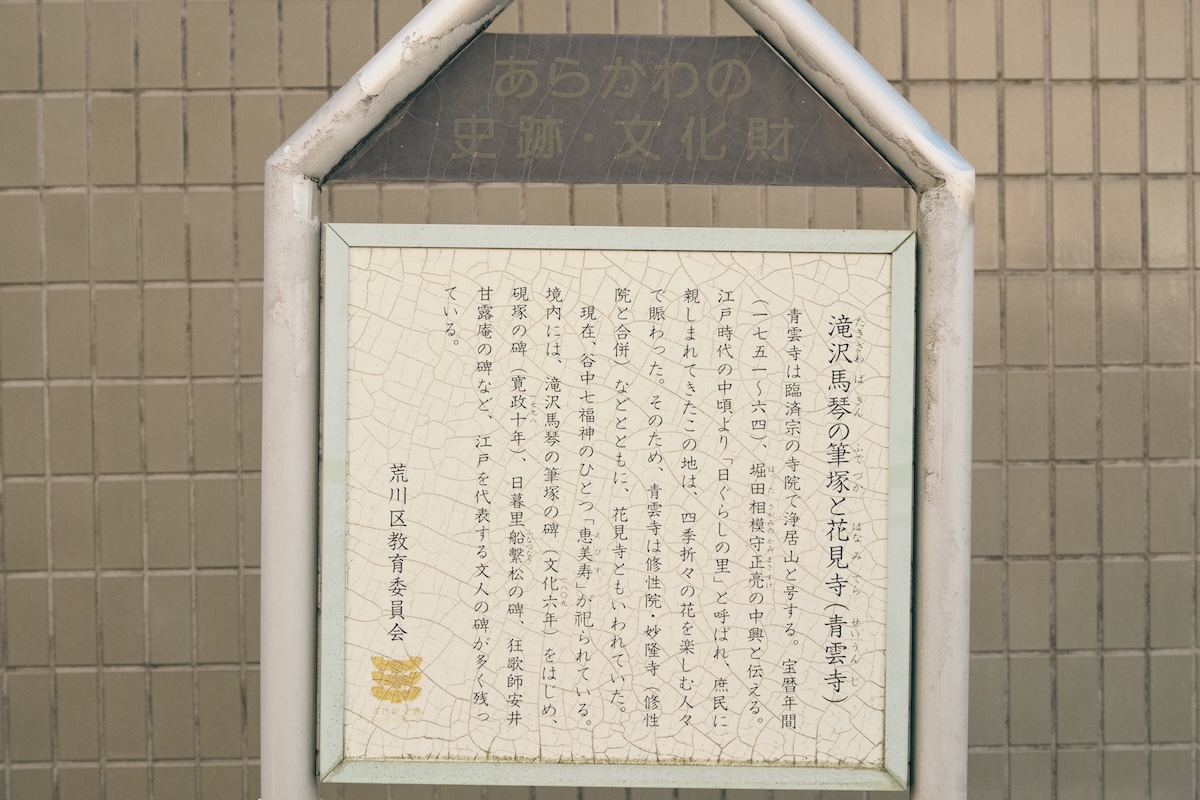 あらかわの
史跡・文化財
滝沢馬琴の筆塚と花見寺(青雲寺)
青雲寺は臨済宗の寺院で浄居山と号する。宝暦年間
(一七五一〜六四)、堀田相模守正亮の中興と伝える。
江戸時代の中頃より「日ぐらしの里」と呼ばれ、庶民に
親しまれてきたこの地は、四季折々の花を楽しむ人々
で賑わった。そのため、青雲寺は修性院・妙隆寺(修性
院と合併)などとともに、花見寺ともいわれていた。
現在、谷中七福神のひとつ「恵美寿」が祀られている。
境内には、滝沢馬琴の筆塚の碑(文化六年)をはじめ、
硯塚の碑(寛政十年)、日暮里船繋松の碑、狂歌師安井
甘露庵の碑など、江戸を代表する文人の碑が多く残っ
ている。
荒川区教育委員会